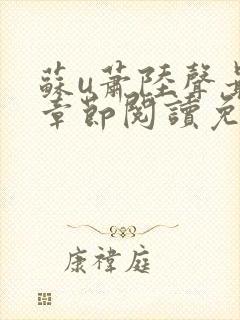 蘇u蕭陸聲
章節閱讀免
康禕庭